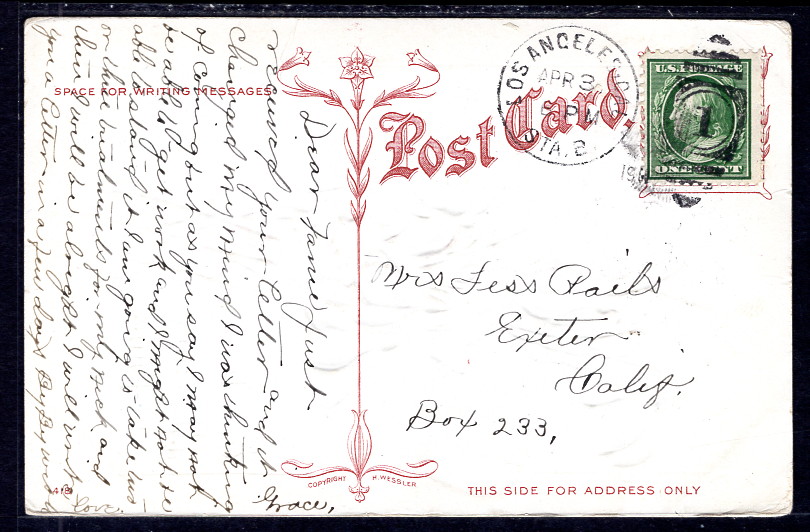 SPACE FOR WRITING MESSAGES
Post Card.
LOS ANGELES
APR 3
PM
STA. B
1
U.S. POSTAGE
ONE CENT
Dear Fame Just
received your letter and it
changed my mind I was thinking
of coming but as you say I may not
be able to get work and I might not be
able to stand it I am going to take
or three treatments for my neck and
then I will be alright I will write
you a letter in a few days By By with
love.
Grace,
Mrs Tess Rails
Exeter
Calif.
Box 233,
418
COPYRIGHT H. WESSLER
THIS SIDE FOR ADDRESS ONLY